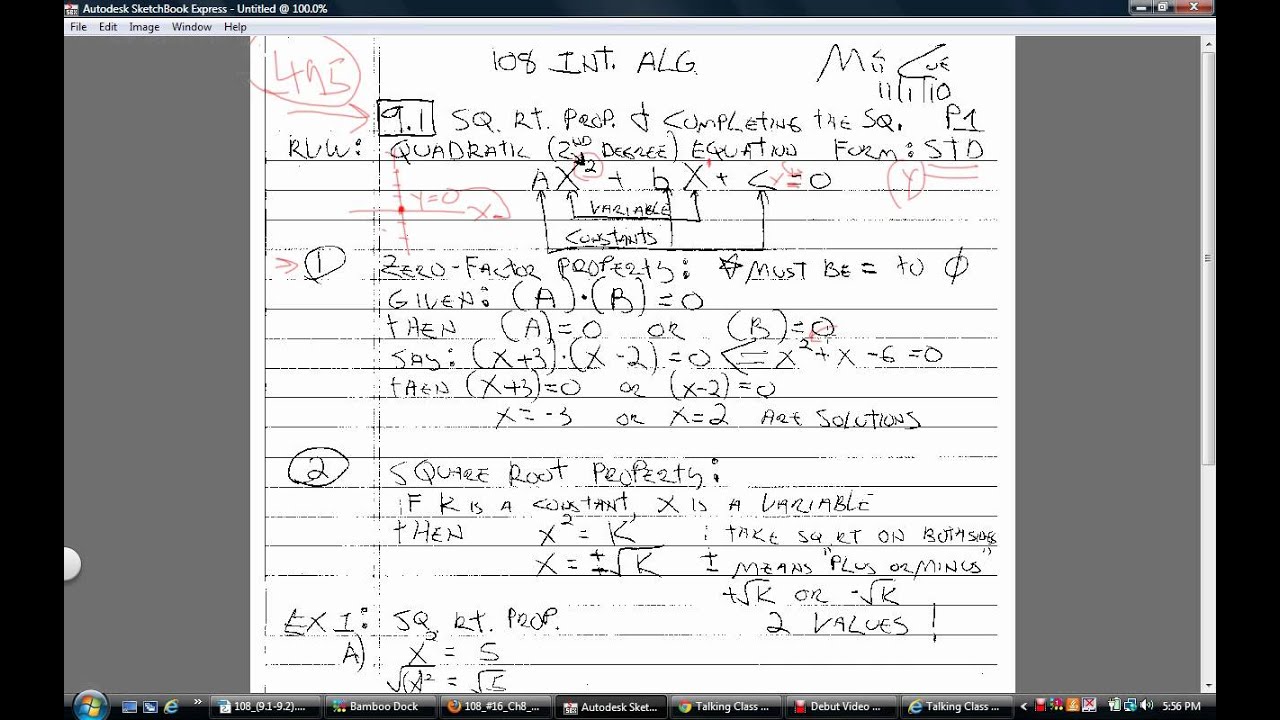 Autodesk SketchBook Express - Untitled @ 100.0%
File Edit Image Window Help
495
108 INT. ALG.
11 11 10
9.1 SQ. RT. PROP. & COMPLETING THE SQ. P1
RVW: QUADRATIC (2ND DEGREE) EQUATION FORM: STD
AX² + bX + C = 0 y
y=0 x
VARIABLE
CONSTANTS
1 ZERO-FACTOR PROPERTY: MUST BE = to 0
GIVEN: (A)·(B)=0
THEN (A)=0 OR (B)=0
SAY: (X+3)·(X-2)=0 <= x²+x-6=0
THEN (X+3)=0 or (x-2)=0
x=-3 or x=2 ARE SOLUTIONS
2 SQUARE ROOT PROPERTY:
IF K IS A CONSTANT, X IS A VARIABLE
THEN X² = K ; TAKE SQ RT ON BOTH SIDES
X = ±√K ± MEANS "PLUS OR MINUS"
+√K OR -√K
EX I: SQ. RT. PROP. 2 VALUES !
A) X² = 5
√(x)² = √5
108_(9.1-9.2).... Bamboo Dock 108_#16_Ch8_... Autodesk Sket... Talking Class ... Debut Video ... Talking Class ... 5:56 PM